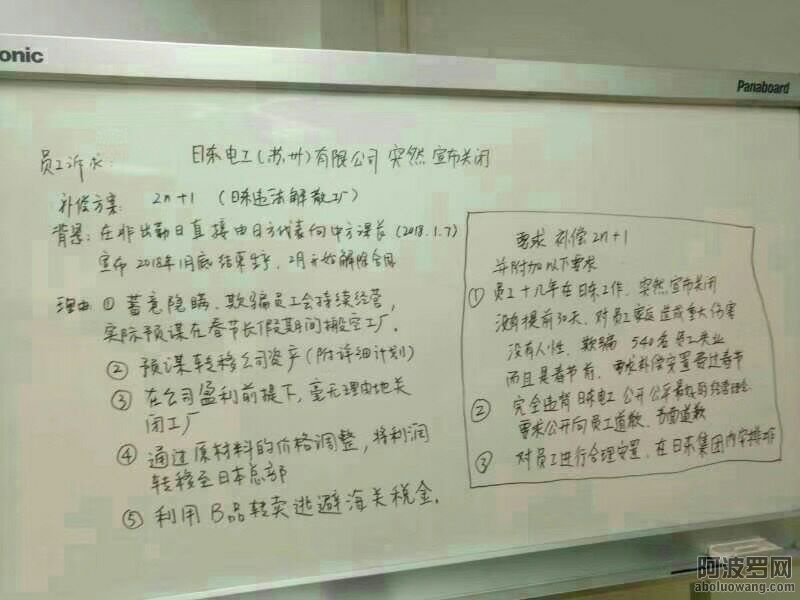 onic
Panaboard
员工诉求: 日东电工(苏州)有限公司 突然宣布关闭
补偿方案: 2n+1 (日东违法解散工厂)
背景: 在非出勤日直接由日方代表向中方课长(2018.1.7)
宣布2018年1月底结束生产, 2月开始解除合同
理由: ① 蓄意隐瞒、欺骗员工会持续经营,
实际预谋在春节长假期间搬空工厂.
② 预谋转移公司资产(附详细计划)
③ 在公司盈利前提下, 毫无理由地关
闭工厂
④ 通过原材料的价格调整, 将利润
转移至日本总部
⑤ 利用B品转卖逃避海关税金.
要求 补偿2n+1
并附加以下要求
① 员工十几年在日东工作, 突然宣布关闭
没有提前30天, 对员工家庭造成重大伤害
没有人性, 欺骗 540名员工失业
而且是春节前, 要求补偿安置费过春节
② 完全违背日东电工 公开公平 经营理念
要求公开向员工道歉, 书面道歉
③ 对员工进行合理安置, 在日东集团内安排
阿波罗网
aboluowang.com